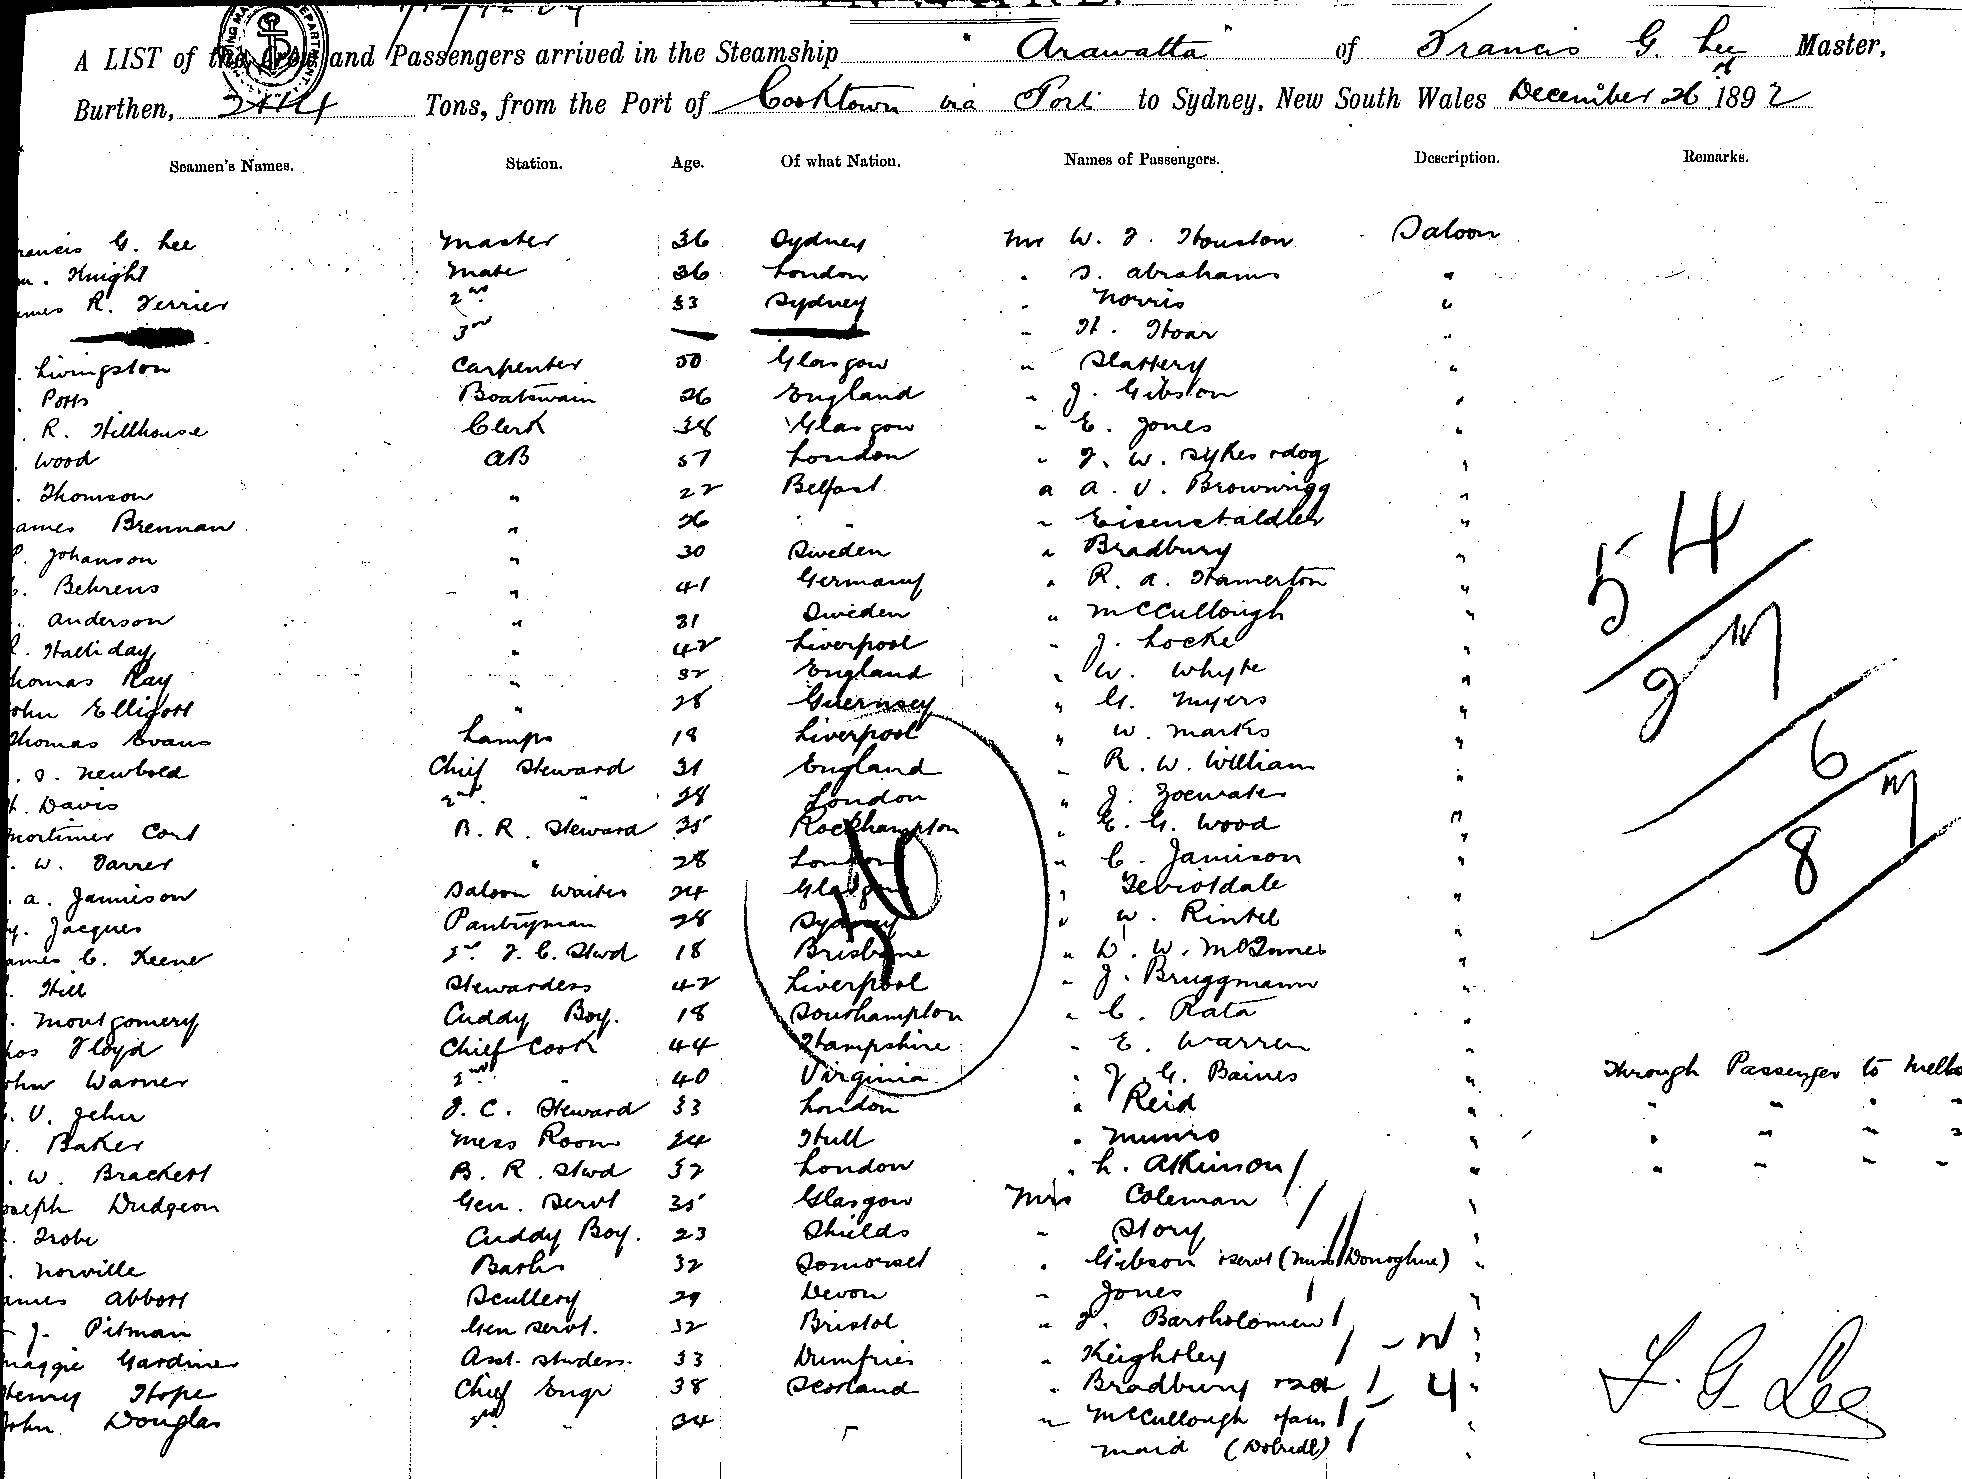 A LIST of the Crew and Passengers arrived in the Steamship "Arawatta" of Francis G. Lee Master,
Burthen, 2114 Tons, from the Port of Cooktown via Ports to Sydney, New South Wales December 26 1892
Seamen's Names. Station. Age. Of what Nation. Names of Passengers. Description. Remarks.
rancis G. Lee Master 36 Sydney Mr W. J. Houston Saloon
m. Knight Mate 36 London " S. Abrahams "
ames R. Ferrier 2nd 33 Sydney " Norris "
3rd " H. Hoar "
Livingston Carpenter 50 Glasgow " Slattery "
Potts Boatswain 26 England " J. Gibson "
R. Hillhouse Clerk 38 Glasgow " E. Jones "
Wood AB 57 London " J. W. Sykes & dog "
Thomson " 22 Belfast " A. V. Brownrigg "
ames Brennan " 26 " " Eisenstaldler "
P. Johanson " 30 Sweden " Bradbury "
Behrens " 41 Germany " R. A. Hamerton "
Anderson " 31 Sweden " McCullough "
Halliday " 42 Liverpool " J. Locke "
homas Ray " 32 England " W. Whyte "
ohn Ellicott " 28 Guernsey " G. Myers "
Thomas Evans Lamps 18 Liverpool " W. Marks "
S. Newbold Chief Steward 31 England " R. W. William "
H. Davis 2nd " 28 London " J. "
Mortimer Cort B. R. Steward 35 Rockhampton " E. G. Wood "
W. Farrer " 28 London " C. Jamison "
A. Jamieson Saloon Waiter 24 Glasgow " Teviotdale "
Jacques Pantryman 28 Sydney " W. Rintel "
ames C. Keene 2nd F. C. Stwd 18 Brisbane " D. W. McInnes "
Hill Stewardess 42 Liverpool " J. Bruggmann "
Montgomery Cuddy Boy. 18 Southampton " C. Rata "
hos Floyd Chief Cook 44 Hampshire " E. Warren "
ohn Warner 2nd " 40 Virginia " J. G. Baines " Through Passenger to Melb
V. Jehu F. C. Steward 33 London " Reid " " " " "
Baker Mess Room 24 Hull " Munro " " " " "
W. Brackett B. R. Stwd 32 London " L. Atkinson " " " " "
oseph Dudgeon Gen. Servt 35 Glasgow Mrs Coleman "
Frobe Cuddy Boy. 23 Shields " Story "
Norville Baths 32 Somerset " Gibson & servt (Miss Donoghue) "
ames Abbott Scullery 29 Devon " Jones "
J. Pitman Gen servt. 32 Bristol " F. Bartholomew "
Maggie Gardiner Asst. Studess. 33 Dumfries " Keightley "
Henry Hope Chief Engr 38 Scotland " Bradbury 4 "
John Douglas 2nd " 34 " " McCullough & fam "
maid "
54
27
6
87
56
F. G. Lee